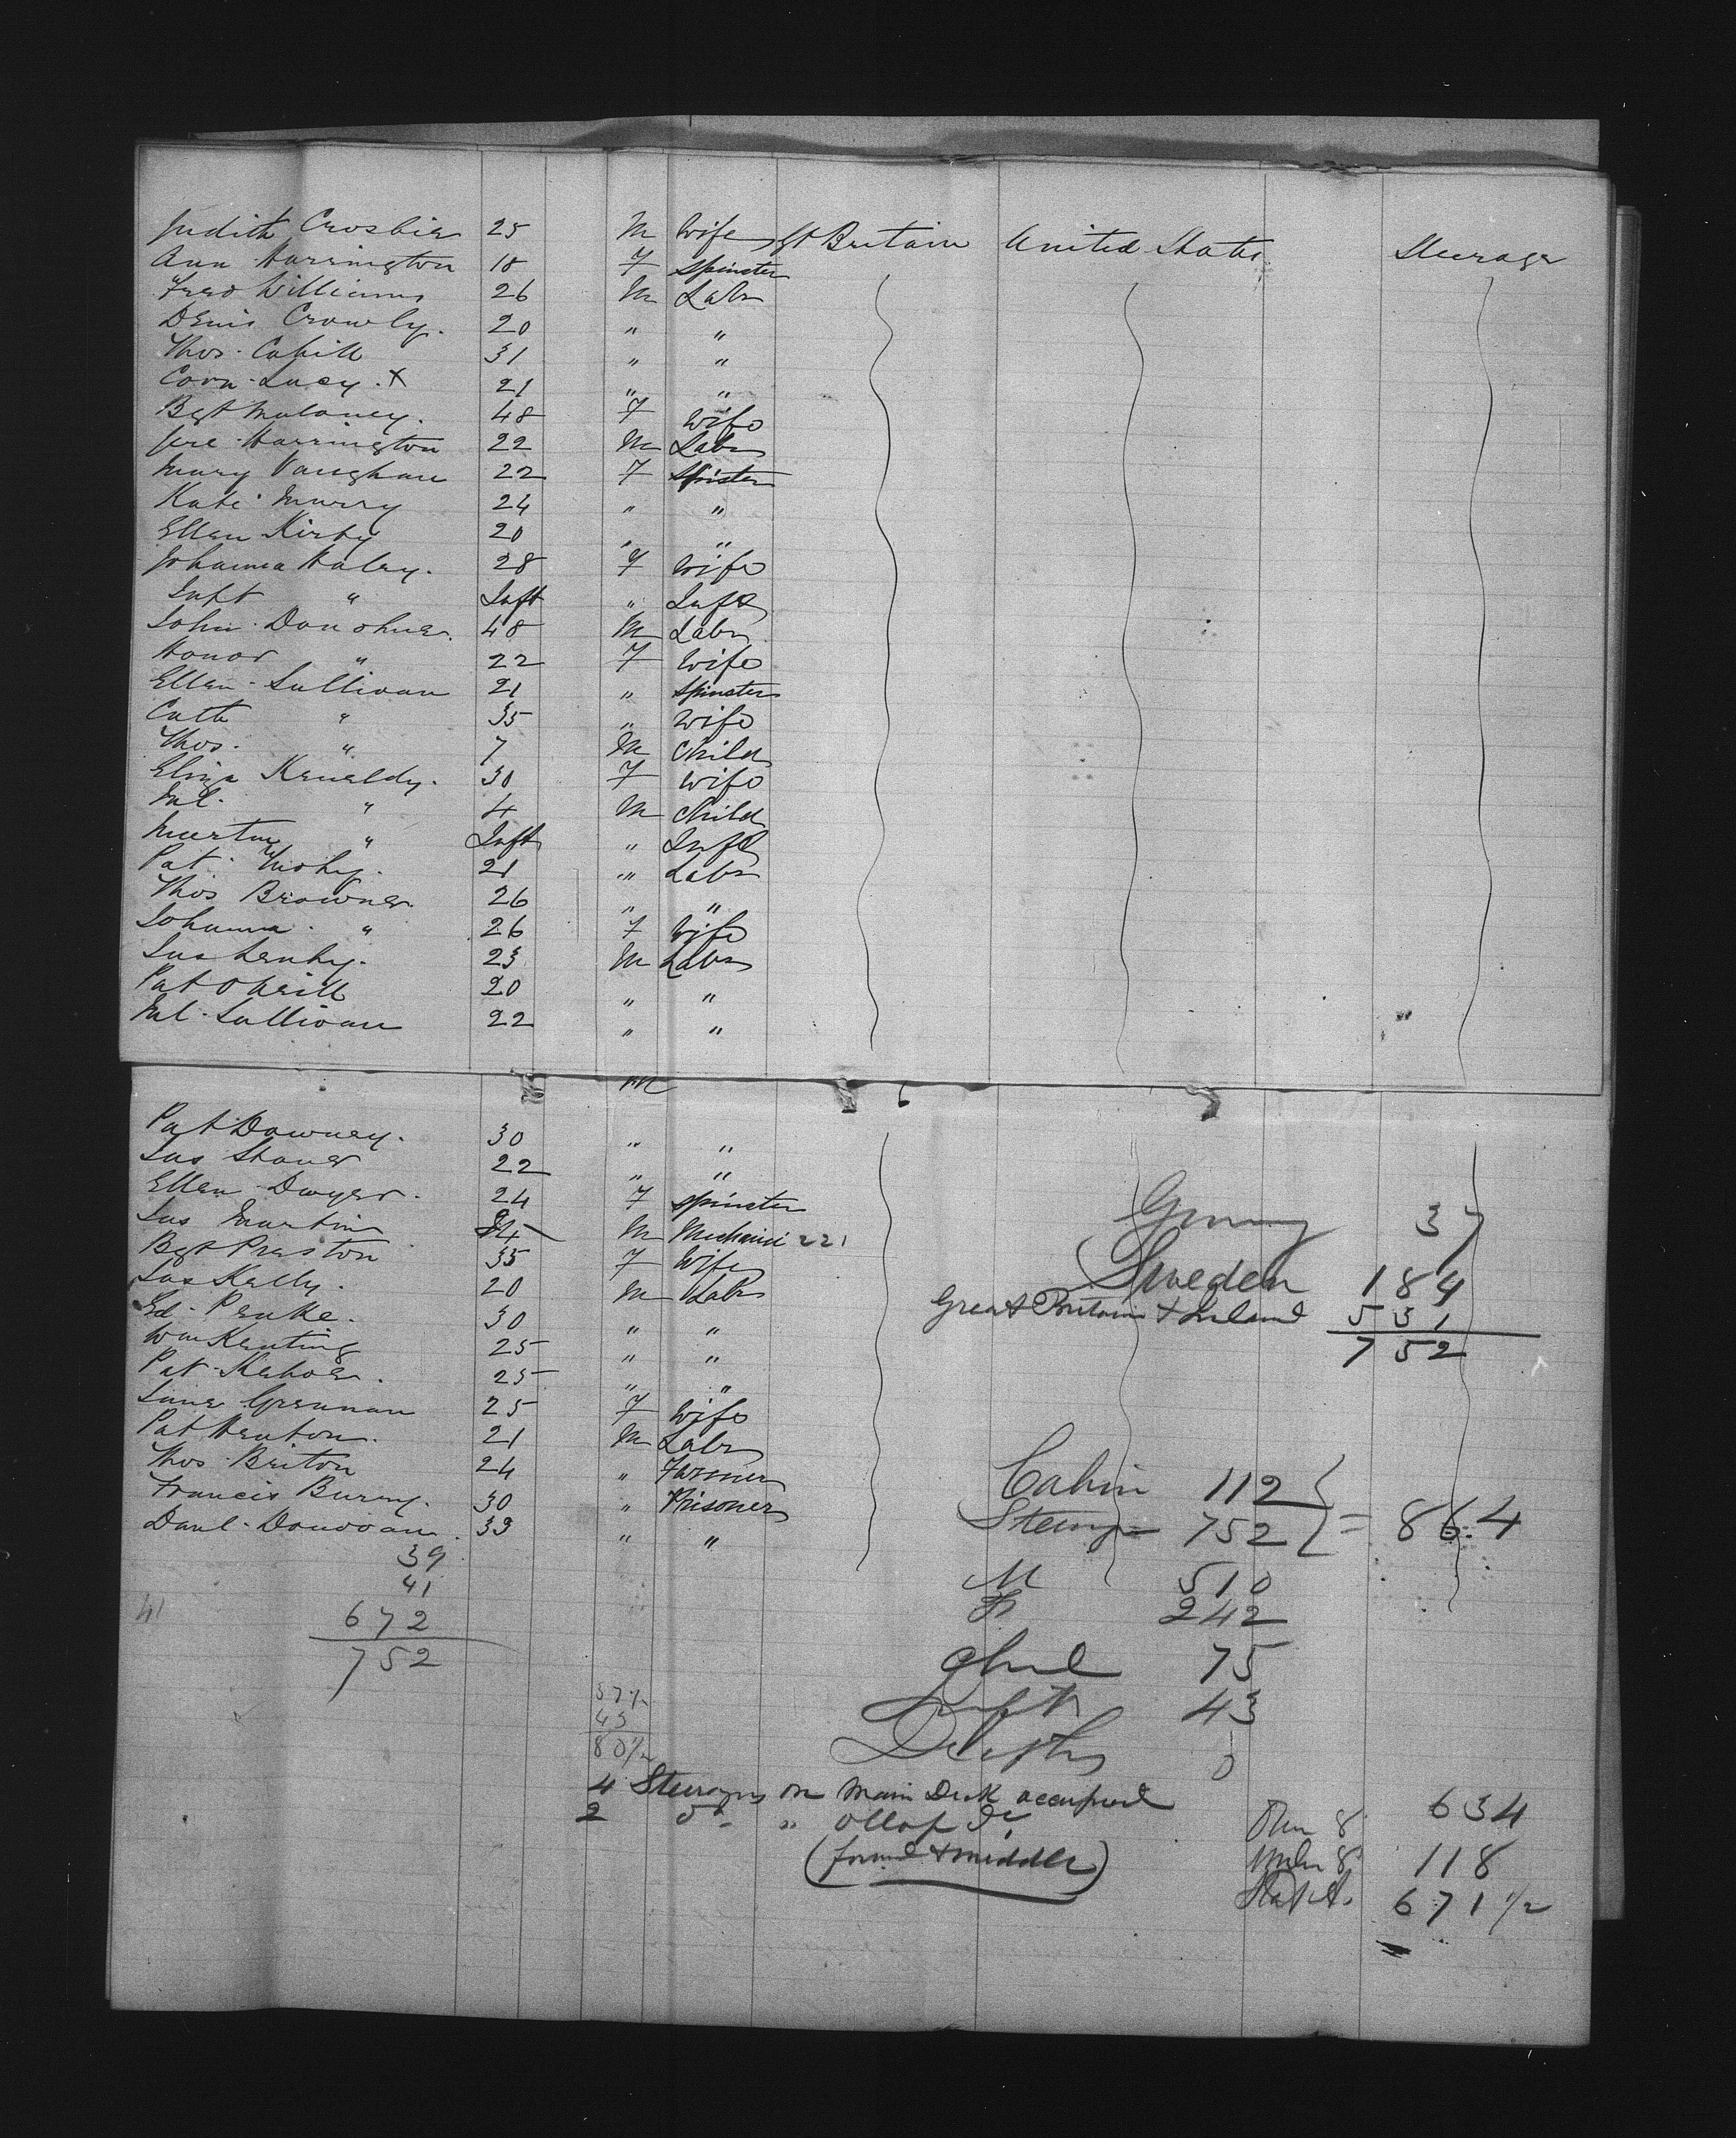 Judith Crosbie 25 M Wife Gt Britain United States Steerage
Ann Harrington 18 F Spinster
Fred Williams 26 M Labr
Denis Crowly. 20 " "
Thos. Cahill 31 " "
Corn. Lucy. X 21 " "
Bgt Maloney. 48 F Wife
Jere Harrington 22 M Labr
Mary Vaughan 22 F Spinster
Kate Murry 24 " "
Ellen Kirby 20 " "
Johanna Haley. 28 F Wife
Inft " Inft " Inft
John Donohue. 48 M Labr
Honor " 22 F Wife
Ellen Sullivan 21 " Spinster
Cath " 35 " Wife
Thos. " 7 M Child
Eliza Kenealdy. 30 F Wife
Ml. " 4 M Child
Martin " Inft " Inft
Pat 21 " Labr
Thos Browne 26 " "
Johanna " 26 F Wife
Jas 23 M Labr
Pat O Neill 20 " "
Ml. Sullivan 22 " "
M
Pat Downey. 30 " "
Jas Stones 22 " "
Ellen Dwyer. 24 F Spinster
Jas Martin M Mechanic 221
Bgt Preston 35 F Wife
Jas Kelly. 20 M Labr
Ed. Peake. 30 " "
Wm Keating 25 " "
Pat Kehoe. 25 " "
Jane Grennan 25 F Wife
Pat Heaton. 21 M Labr
Thos Briton 24 " Farmer
Francis 30 " Prisoner
Danl. Donovan. 33 " "
39
41
41 672
752
Germy 37
Sweden 184
Great Britain & Ireland 531
752
Cabin 112
Steerage 752 } = 864
M 510
F 242
Chil 75
Inft 43
Deaths 0
37½
43
80½
4 Steerages on Main Deck occupied
2 Do " Ollop Do
(forward & middle)
Over 8 634
Under 8 118
Stat A. 671 1/2